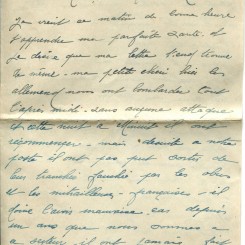 Je vient ce matin de bonne heure
t'apprendre ma parfaite santé. et
je désire que ma lettre t'en trouve
de même - ma petite chérie hier les
allemands nous ont bombarder tout
l'après midi - sans aucune attaque
et cette nuit a minuit ils ont
recommencer - mais droite a notre
poste il ont pas put sortir de
leur tranchée fauchée par les obus
et les mitrailleuses française - il
doive l'avoir mauvaise. car depuis
un ans que nous sommes
a secteur il ont jamais